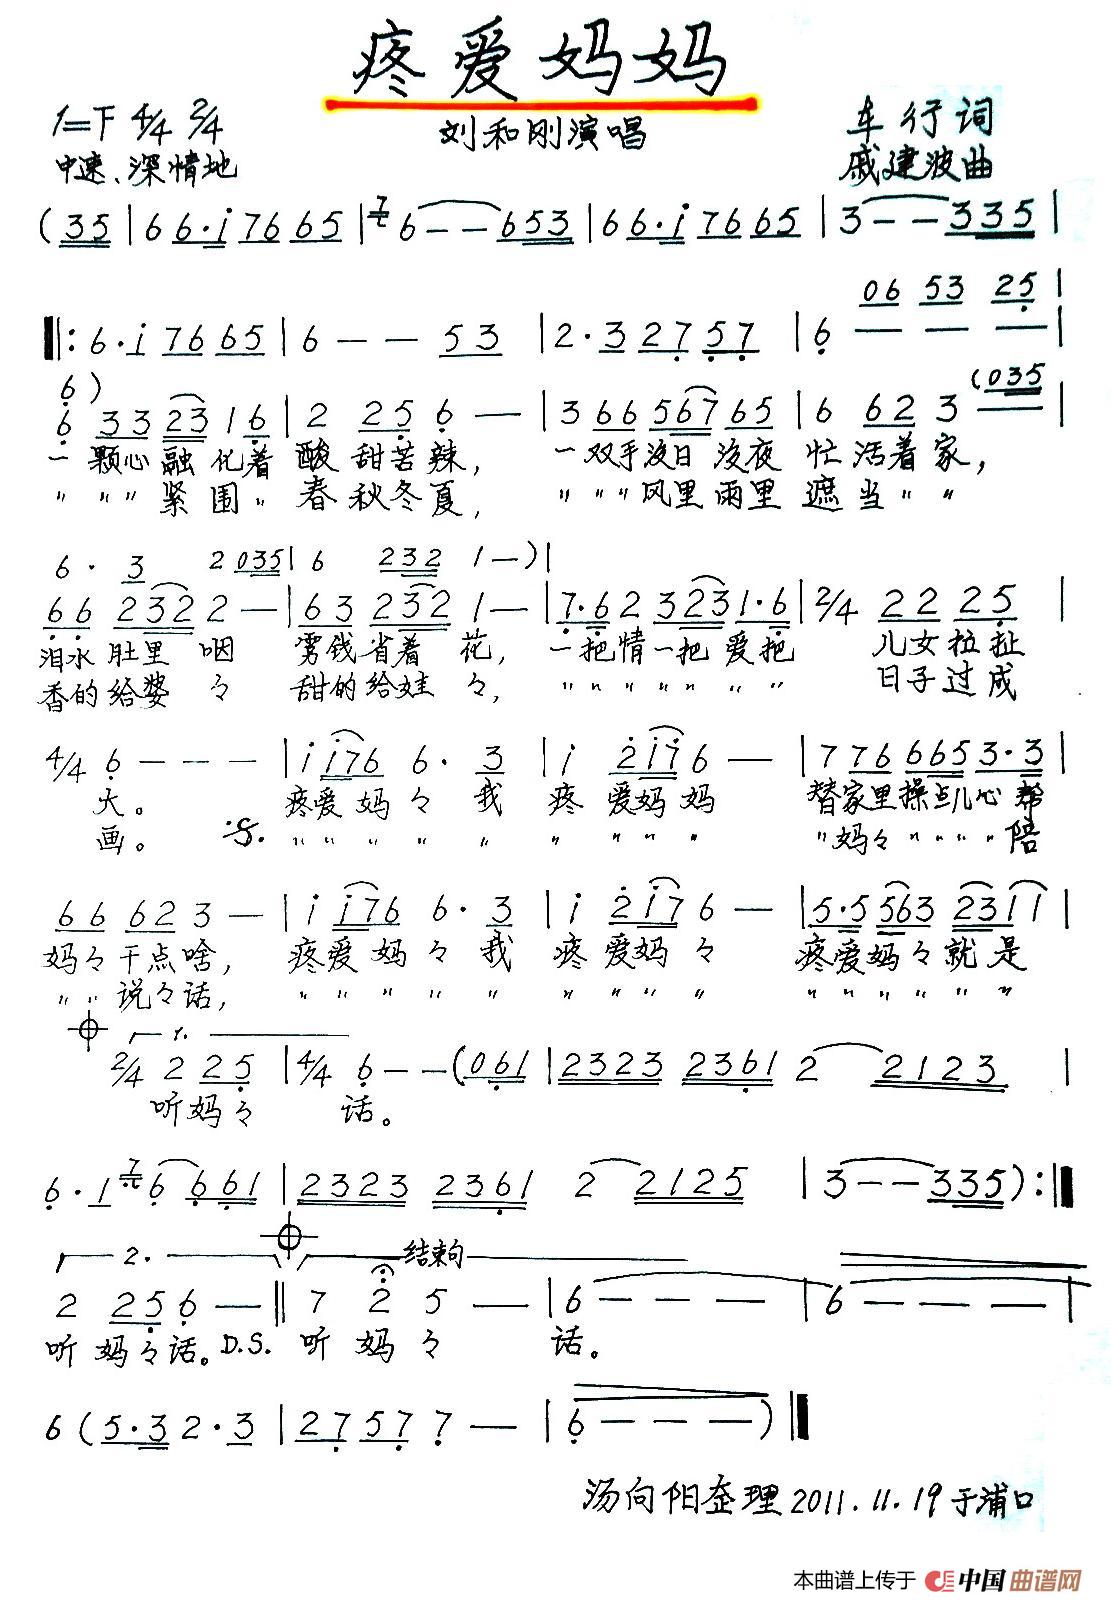 疼爱妈妈
刘和刚演唱
1=F 4/4 2/4
中速、深情地
车行词
戚建波曲
(35 | 66·i 7665 | 6 - - 653 | 66·i 7665 | 3 - - 335 |
06 53 25 |
‖: 6·i 7665 | 6 - - 53 | 2·3 27 57 | 6 - - - |
6) (035
6 33 23 16 | 2 25 6 - | 3 66 567 65 | 6 62 3 - |
一颗心融化着 酸甜苦辣, 一双手没日没夜 忙活着家,
〃〃〃紧围〃 春秋冬夏, 〃〃〃风里雨里 遮当〃〃
6· 3 2 035 | 6 232 1 - ) |
66 232 2 - | 63 232 1 - | 7·62 323 1·6 | 2/4 22 25 |
泪水肚里咽 雾钱省着花, 一把情一把爱把 儿女拉扯
香的给婆々 甜的给娃々, 〃〃〃〃〃〃〃 日子过成
4/4 6 - - - | i i76 6· 3 | i 2i7 6 - | 7 76 665 3·3 |
大。 疼爱妈々我 疼爱妈妈 替家里操点儿心帮
画。 :S. 〃〃〃〃〃 〃〃〃〃 〃妈々〃〃〃〃陪
66 62 3 - | i i76 6· 3 | i 2i7 6 - | 5·5 563 23 11 |
妈々干点啥, 疼爱妈々我 疼爱妈々 疼爱妈々就是
〃〃说々话, 〃〃〃〃〃 〃〃〃〃 〃〃〃〃〃〃
1.
2/4 2 25 | 4/4 6 - - (061 | 2323 2361 2 2123 |
听妈々 话。
6·1 6 661 | 2323 2361 2 2125 | 3 - - 335) :‖
2. 结束句
2 25 6 - ‖ 7 2 5 - | 6 - - - | 6 - - - |
听妈々话。D.S. 听妈々 话。
6 (5·3 2·3 | 27 57 7 - | 6 - - - ) ‖
汤向阳整理 2011.11.19于浦口
本曲谱上传于 中国曲谱网